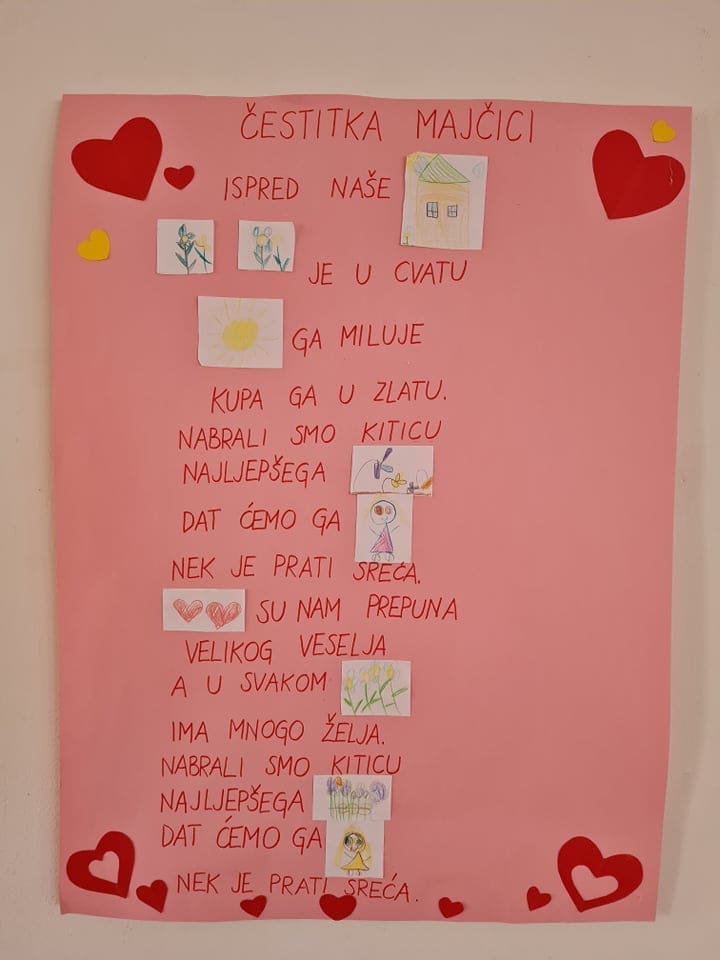 ČESTITKA MAJČICI
ISPRED NAŠE
JE U CVATU
GA MILUJE
KUPA GA U ZLATU.
NABRALI SMO KITICU
NAJLJEPŠEGA
DAT ĆEMO GA
NEK JE PRATI SREĆA.
SU NAM PREPUNA
VELIKOG VESELJA
A U SVAKOM
IMA MNOGO ŽELJA.
NABRALI SMO KITICU
NAJLJEPŠEGA
DAT ĆEMO GA
NEK JE PRATI SREĆA.